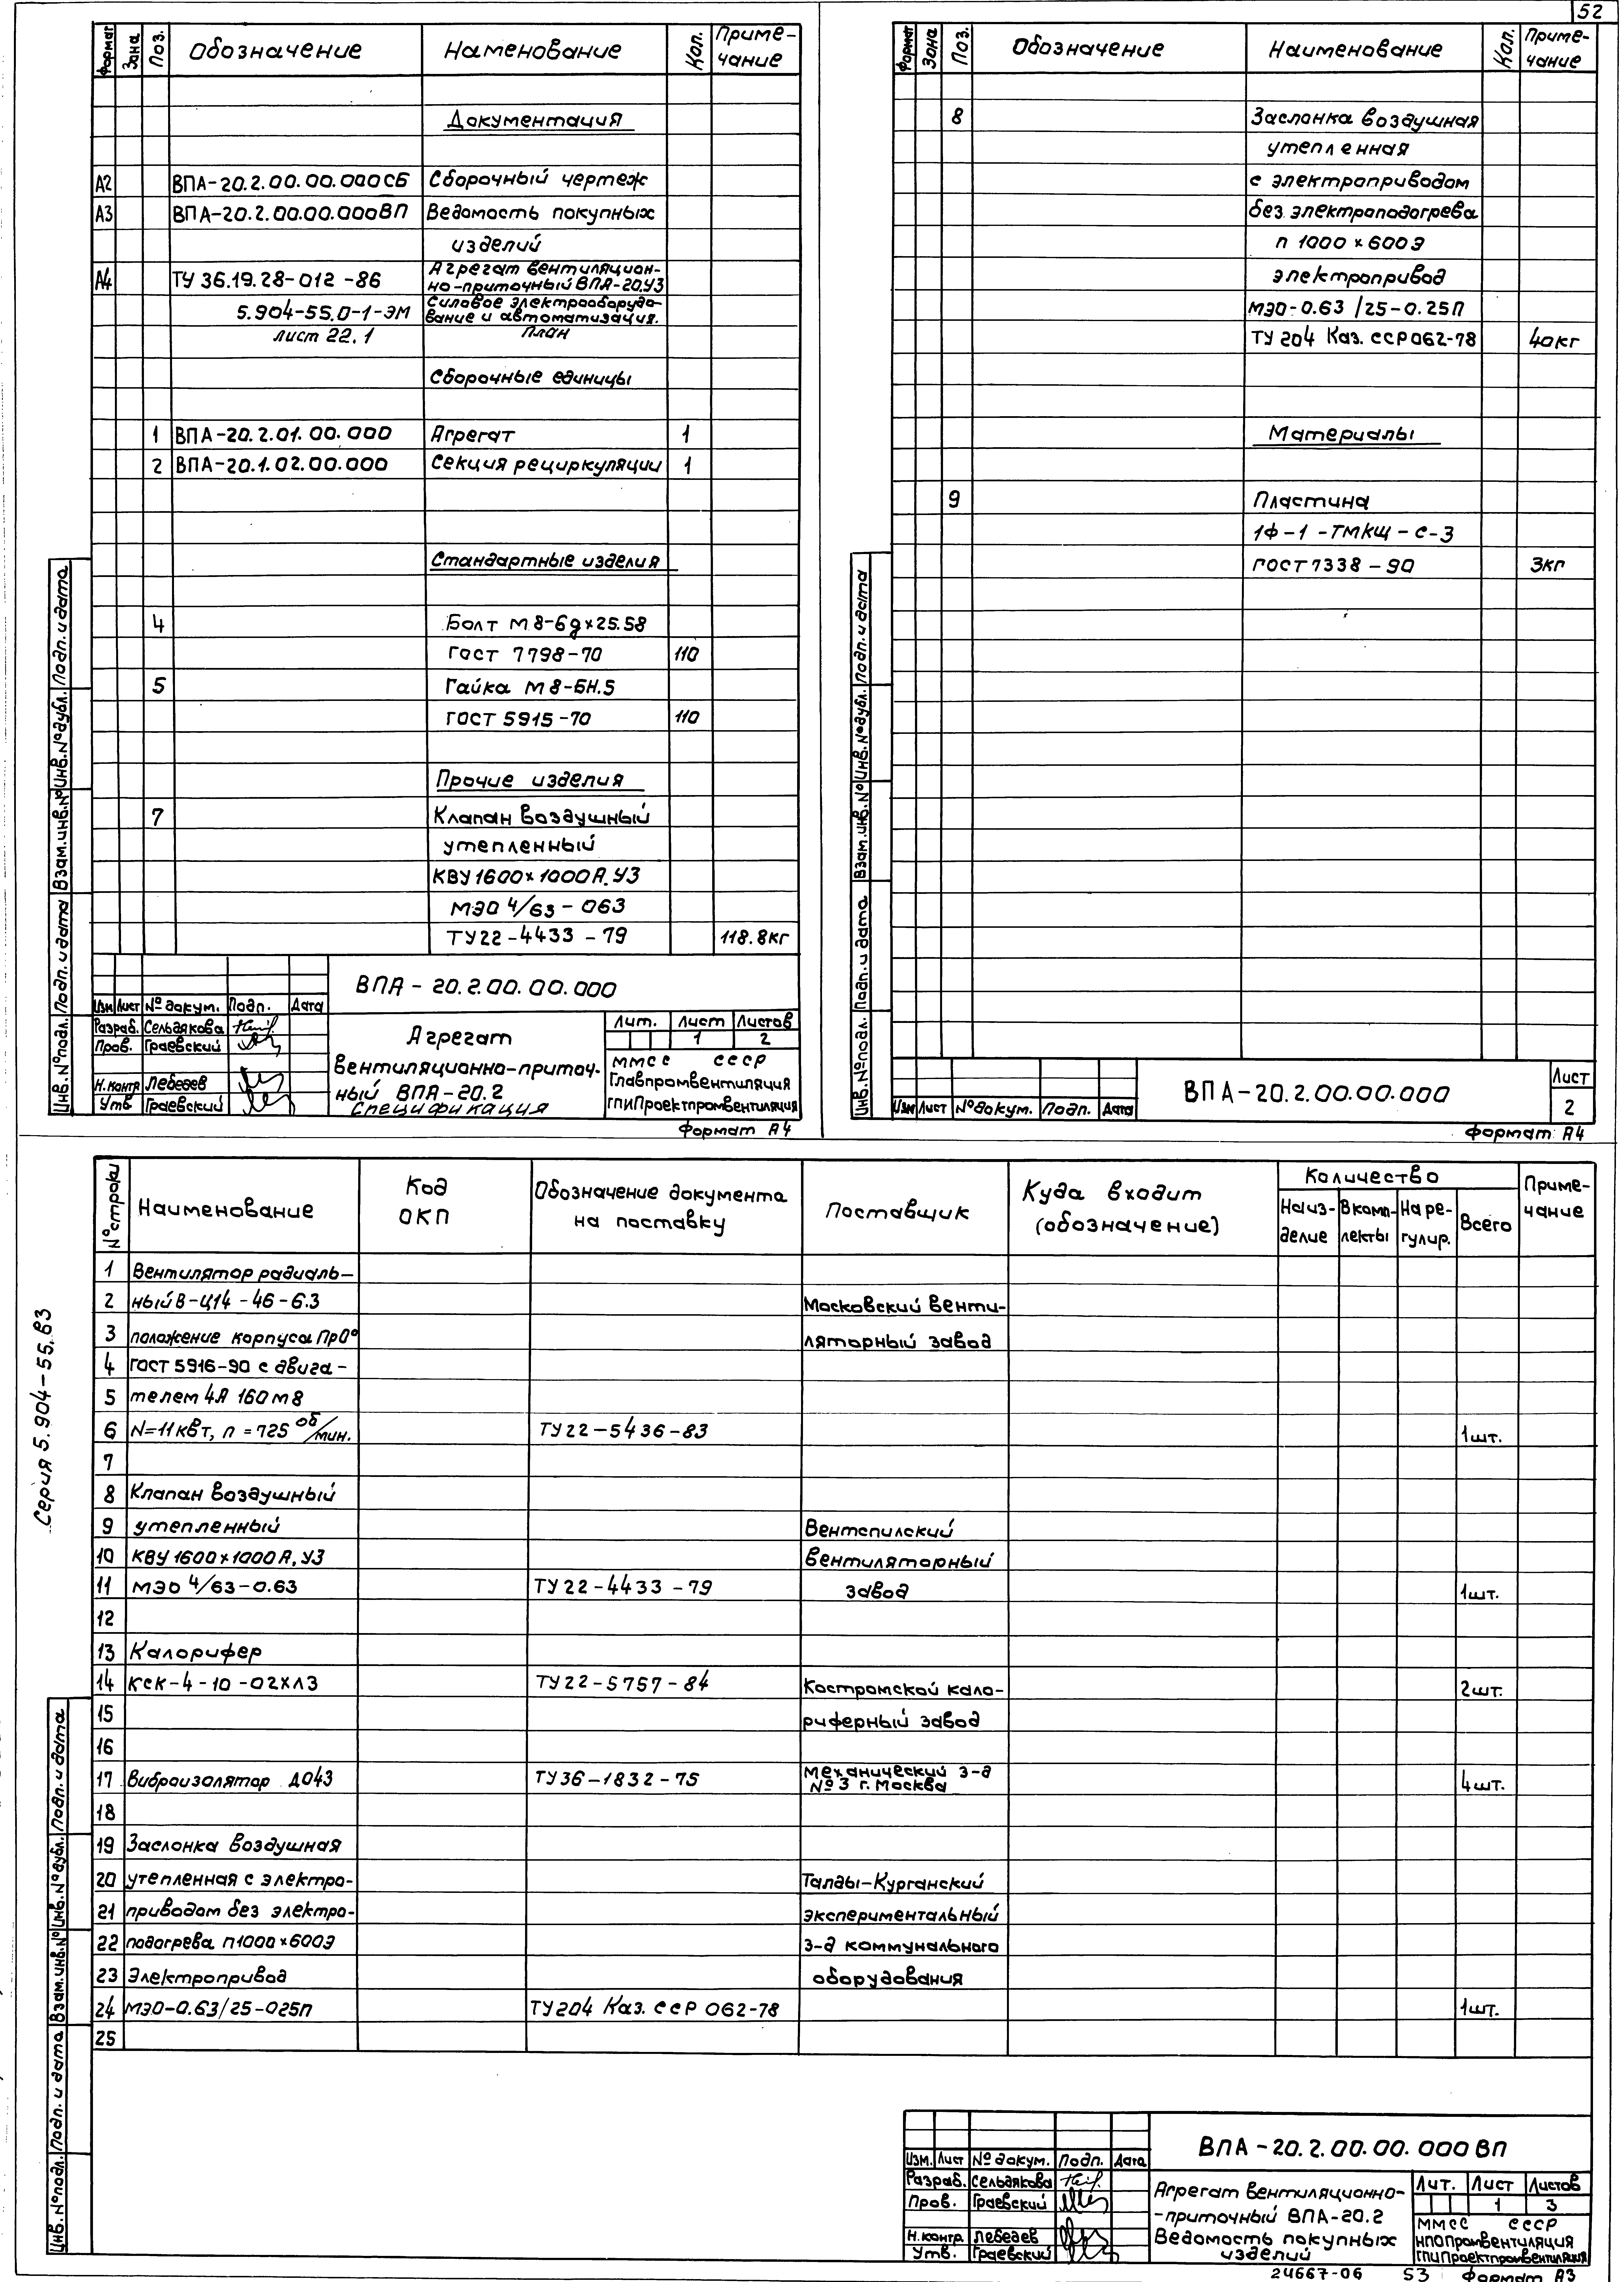 52
Формат Зона Поз. Обозначение Наменование Кол. Приме-
чание
Документация
А2 ВПА-20.2.00.00.000СБ Сборочный чертеж
А3 ВПА-20.2.00.00.000ВП Ведомость покупных
изделий
А4 ТУ 36.19.28-012-86 Агрегат вентиляцион-
но-приточный ВПА-20.У3
5.904-55.0-1-ЭМ Силовое электрооборудо-
вание и автоматизация.
лист 22.1 План
Сборочные единицы
1 ВПА-20.2.01.00.000 Агрегат 1
2 ВПА-20.1.02.00.000 Секция рециркуляции 1
Стандартные изделия
4 Болт М8-6g×25.58
Гост 7798-70 110
5 Гайка М8-6Н.5
ГОСТ 5915-70 110
Прочие изделия
7 Клапан воздушный
утепленный
КВУ 1600×1000А.У3
МЭО 4/63-063
ТУ22-4433-79 118.8кг
ВПА-20.2.00.00.000
Изм Лист № докум. Подп. Дата
Разраб. Сельдякова
Пров. Граевский
Н.контр Лебедев
Утв. Граевский
Агрегат
вентиляционно-приточ-
ный ВПА-20.2
Спецификация
Лит. Лист Листов
1 2
ММСС СССР
Главпромвентиляция
ГПИПроектпромвентиляция
Формат А4
Инв.№подл. Подп. и дата Взам.инв.№ Инв.№дубл. Подп. и дата
Формат Зона Поз. Обозначение Наименование Кол. Приме-
чание
8 Заслонка воздушная
утепленная
с электроприводом
без электроподогрева
п 1000×600Э
электропривод
МЭО-0.63/25-0.25П
ТУ 204 Каз. ССР 062-78 40кг
Материалы
9 Пластина
1Ф-1-ТМКЩ-С-3
ГОСТ 7338-90 3кг
ВПА-20.2.00.00.000
Лист
2
Изм Лист №докум. Подп. Дата
Формат А4
Инв.№подл. Подп. и дата Взам.инв.№ Инв.№дубл. Подп. и дата
№строки Наименование Код
ОКП Обозначение документа
на поставку Поставщик Куда входит
(обозначение) Количество Приме-
чание
На из-
делие В комп-
лекты На ре-
гулир. Всего
1 Вентилятор радиаль-
2 ный В-Ц14-46-6.3 Московский венти-
3 положение корпуса Пр0° ляторный завод
4 ГОСТ 5916-90 с двига-
5 телем 4А 160М8
6 N=11кВт, n=725 об/мин. ТУ22-5436-83 1шт.
7
8 Клапан воздушный
9 утепленный Вентспилский
10 КВУ 1600×1000А.У3 вентиляторный
11 МЭО 4/63-0.63 ТУ22-4433-79 завод 1шт.
12
13 Калорифер
14 КСК-4-10-02ХЛ3 ТУ22-5757-84 Костромской кало- 2шт.
15 риферный завод
16
17 Виброизолятор ДО43 ТУ36-1832-75 Механический з-д
№3 г.Москва 4шт.
18
19 Заслонка воздушная
20 утепленная с электро- Талды-Курганский
21 приводом без электро- экспериментальный
22 подогрева п1000×600Э з-д коммунального
23 Электропривод оборудования
24 МЭО-0.63/25-025П ТУ204 Каз. ССР 062-78 1шт.
25
Серия 5.904-55.в3
Инв.№подл. Подп. и дата Взам.инв.№ Инв.№дубл. Подп. и дата
ВПА-20.2.00.00.000ВП
Изм. Лист № докум. Подп. Дата
Разраб. Сельдякова
Пров. Граевский
Н.контр. Лебедев
Утв. Граевский
Агрегат вентиляционно-
-приточный ВПА-20.2
Ведомость покупных
изделий
Лит. Лист Листов
1 3
ММСС СССР
НПОПромвентиляция
ГПИПроектпромвентиляция
24667-06 53 Формат А3